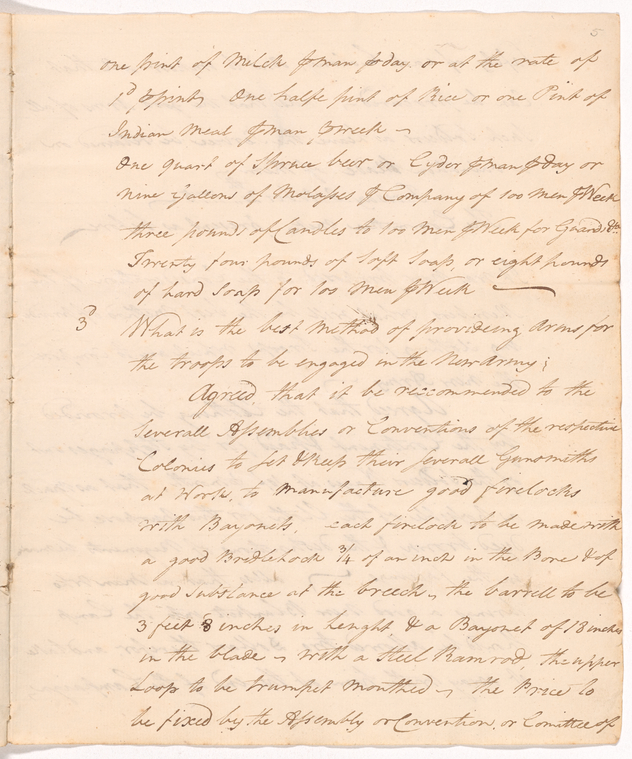 5
one pint of Milck ⅌ man ⅌ day. or at the rate of
1d ⅌ pint, One halfe pint of Rice or one Pint of
Indian Meal ⅌ man ⅌ week ~
One quart of Spruce beer or Cyder ⅌ man ⅌ day or
nine Gallons of Molasses ⅌ Company of 100 Men ⅌ Week
three pounds of Candles to 100 Men ⅌ Week for Guards &c.
Twenty four pounds of Soft Soap, or eight pounds
of hard Soap for 100 Men ⅌ Week
3d What is the best Method of provideing Arms for
the troops to be engaged in the New Army;
Agreed that it be recommended to the
Severall Assemblies or Conventions of the respective
Colonies to Set & Keep their Severall Gunsmiths
at Work, to Manufacture good firelocks
with Bayonets, each firelock to be made with
a good Bridlelock 3/4 of an inch in the Bore & of
good Substance at the breech, the barrell to be
3 feet 8 inches in lenght & a Bayonet of 18 inches
in the blade ~ with a Steel Ramrod, the upper
Loop to be trumpet Mouthed ~ the Price to
be fixed by the Assembly or Convention, or Comittee of